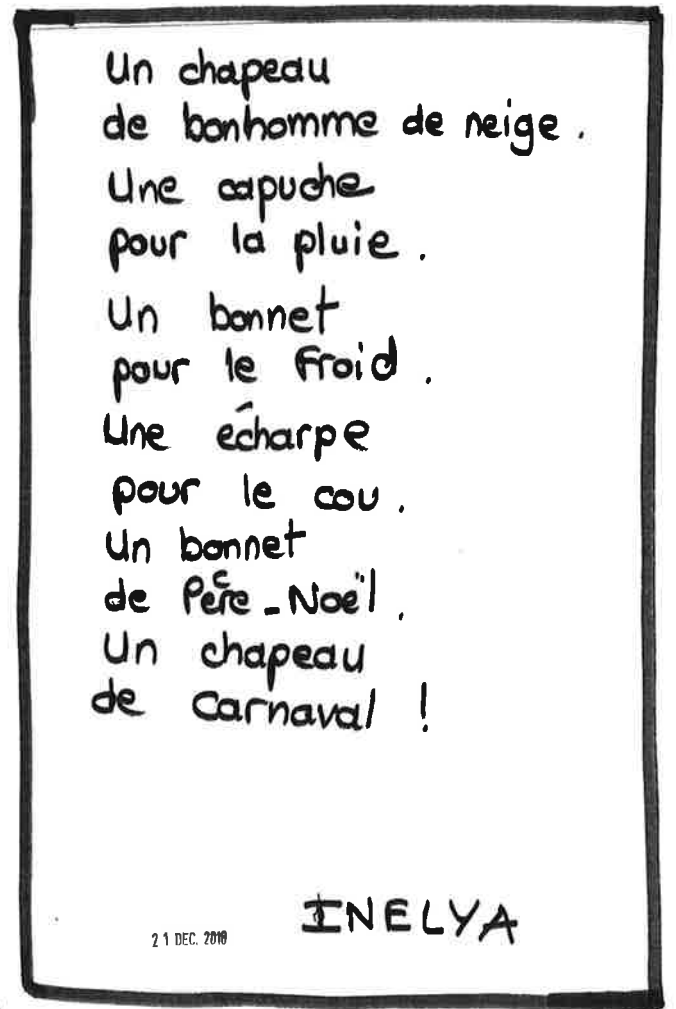 Un chapeau
de bonhomme de neige.
Une capuche
pour la pluie.
Un bonnet
pour le froid.
Une écharpe
pour le cou.
Un bonnet
de Père-Noël.
Un chapeau
de carnaval !
INELYA
21 DEC. 2018